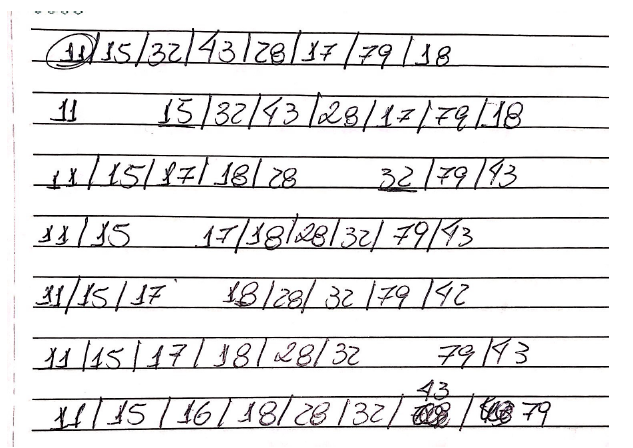 11/15/32/43/28/17/79/18
11 15/32/43/28/17/79/18
11/15/17/18/28 32/79/43
11/15 17/18/28/32/79/43
11/15/17 18/28/32/79/42
11/15/17/18/28/32 79/43
11/15/16/18/28/32/43/79